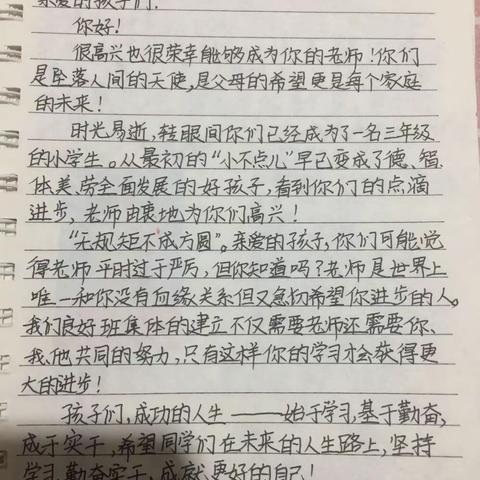 亲爱的孩子们:
你好!
很高兴也很荣幸能够成为你的老师!你们
是坠落人间的天使,是父母的希望更是每个家庭
的未来!
时光易逝,转眼间你们已经成为了一名三年级
的小学生。从最初的“小不点儿”早已变成了德、智、
体、美、劳全面发展的好孩子,看到你们的点滴
进步,老师由衷地为你们高兴!
“无规矩不成方圆”。亲爱的孩子,你们可能觉
得老师平时过于严厉,但你知道吗?老师是世界上
唯一和你没有血缘关系但又急切希望你进步的人。
我们良好班集体的建立不仅需要老师还需要你、
我、他共同的努力,只有这样你的学习才会获得更
大的进步!
孩子们,成功的人生——始于学习,基于勤奋,
成于实干,希望同学们在未来的人生路上,坚持
学习,勤奋实干,成就更好的自己!